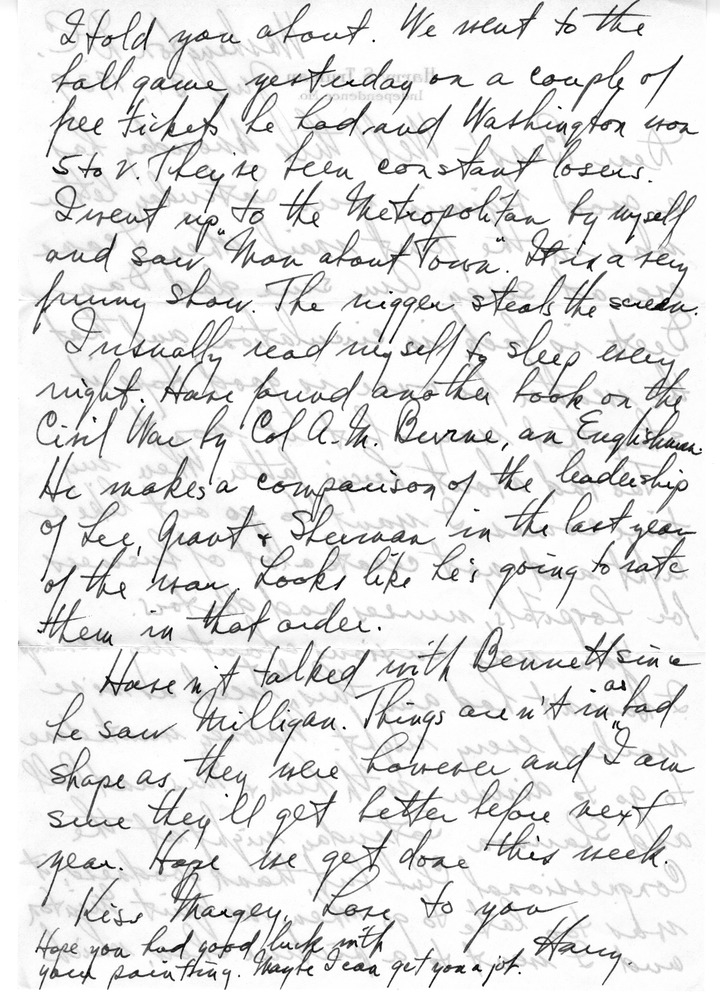 I told you about. We went to the
ball game yesterday on a couple of
free tickets he had and Washington won
5 to 2. They've been constant losers.
I went up to the Metropolitan by myself
and saw "Man about Town". It is a very
funny show. The nigger steals the screen.
I usually read myself to sleep every
night. Have found another book on the
Civil War by Col A. H. Burne, an Englishman.
He makes a comparison of the leadership
of Lee, Grant & Sherman in the last year
of the war. Looks like he's going to rate
them in that order.
Haven't talked with Bennett since
he saw Milligan. Things aren't in as bad
shape as they were however and I am
sure they'll get better before next
year. Hope we get done this week.
Kiss Margey, Love to you
Harry.
Hope you had good luck with
your painting. Maybe I can get you a job.